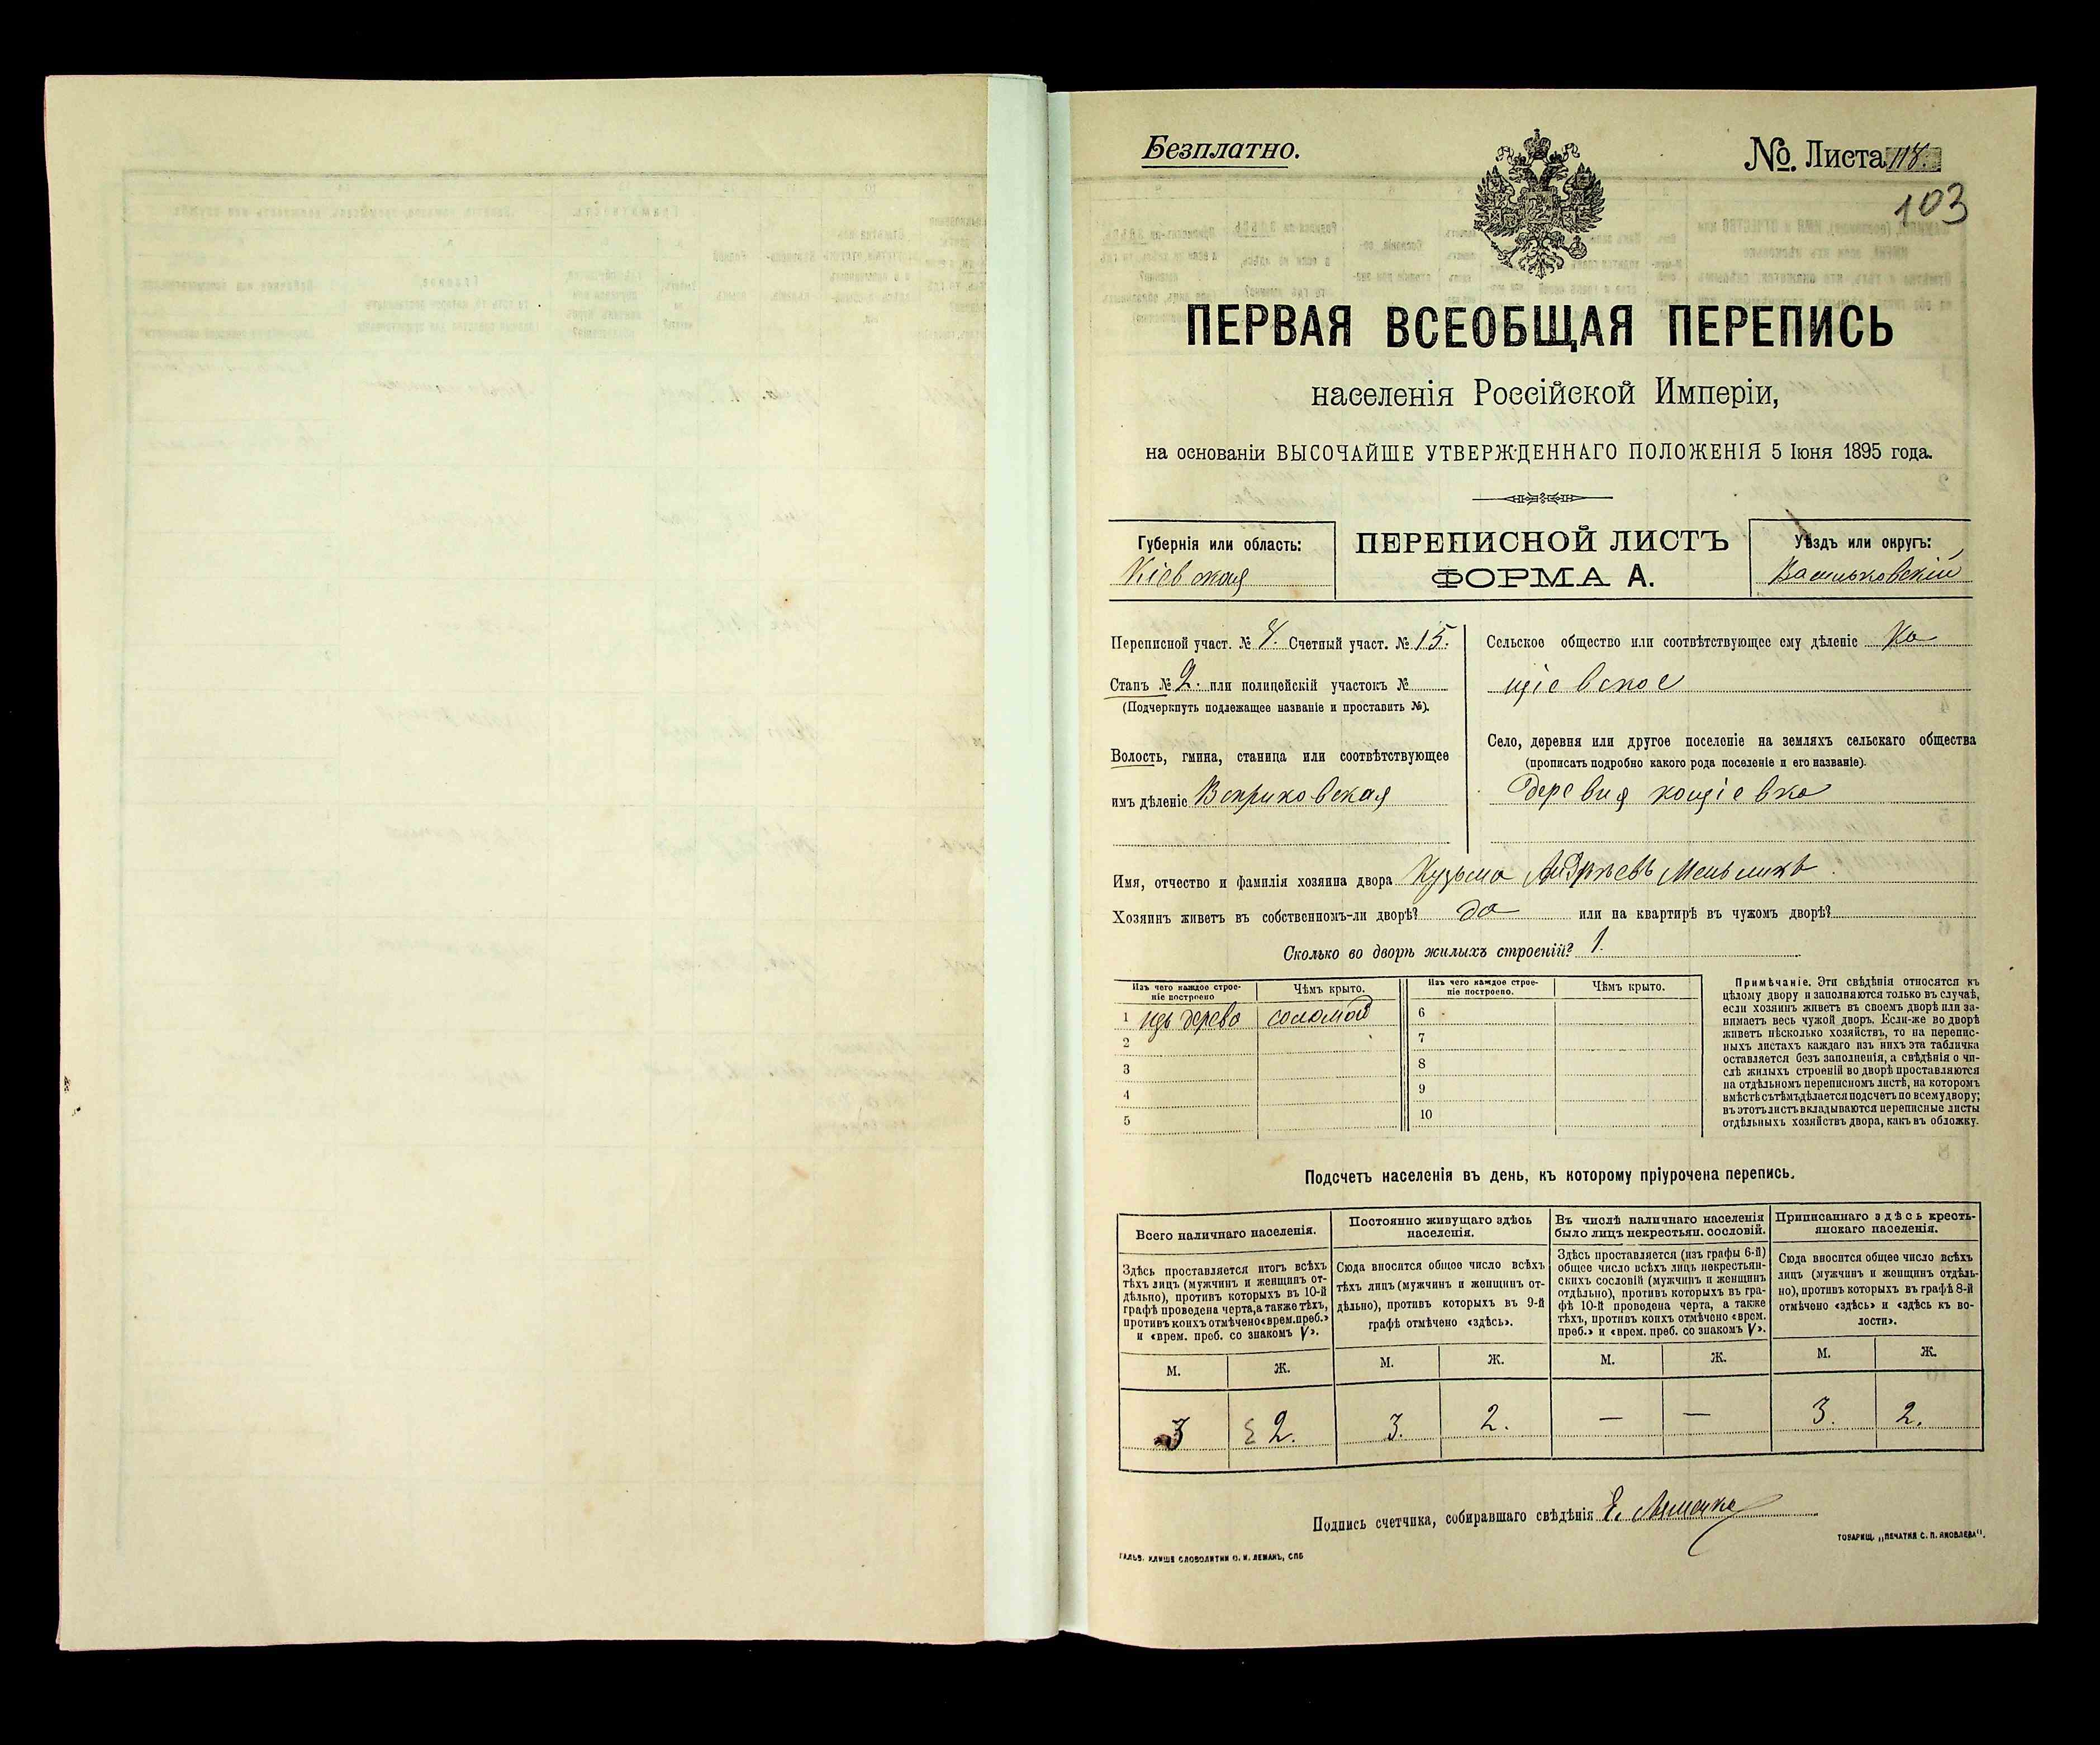 Безплатно.
№. Листа 118.
103
ПЕРВАЯ ВСЕОБЩАЯ ПЕРЕПИСЬ
населенія Россійской Имперіи,
на основаніи ВЫСОЧАЙШЕ УТВЕРЖДЕННАГО ПОЛОЖЕНІЯ 5 Іюня 1895 года.
Губернія или область:
Кіевская
ПЕРЕПИСНОЙ ЛИСТЪ
ФОРМА А.
Уѣздъ или округъ:
Васильковскій
Переписной участ. № 4. Счетный участ. № 15.
Станъ № 2. или полицейскій участокъ №
(Подчеркнуть подлежащее названіе и проставить №).
Волость, гмина, станица или соотвѣтствующее
имъ дѣленіе Веприковская
Сельское общество или соотвѣтствующее ему дѣленіе Ко
щіевское
Село, деревня или другое поселеніе на земляхъ сельскаго общества
(прописать подробно какого рода поселеніе и его названіе).
деревня кощіевка
Имя, отчество и фамилія хозяина двора Кузьма Андрѣевъ Мельникъ.
Хозяинъ живетъ въ собственномъ-ли дворѣ? да или на квартирѣ въ чужомъ дворѣ?
Сколько во дворѣ жилыхъ строеній? 1.
Изъ чего каждое строе-
ніе построено
Чѣмъ крыто.
Изъ чего каждое строе-
ніе построено.
Чѣмъ крыто.
1 изъ дерева соломой 6
2 7
3 8
4 9
5 10
Примѣчаніе. Эти свѣдѣнія относятся къ
цѣлому двору и заполняются только въ случаѣ,
если хозяинъ живетъ въ своемъ дворѣ или за-
нимаетъ весь чужой дворъ. Если-же во дворѣ
живетъ нѣсколько хозяйствъ, то на перепис-
ныхъ листахъ каждаго изъ нихъ эта табличка
оставляется безъ заполненія, а свѣдѣнія о чи-
слѣ жилыхъ строеній во дворѣ проставляются
на отдѣльномъ переписномъ листѣ, на которомъ
вмѣстѣ съ тѣмъ дѣлается подсчетъ по всему двору;
въ этотъ листъ вкладываются переписные листы
отдѣльныхъ хозяйствъ двора, какъ въ обложку.
Подсчетъ населенія въ день, къ которому пріурочена перепись.
Всего наличнаго населенія.
Здѣсь проставляется итогъ всѣхъ
тѣхъ лицъ (мужчинъ и женщинъ от-
дѣльно), противъ которыхъ въ 10-й
графѣ проведена черта, а также тѣхъ,
противъ коихъ отмѣчено «врем. преб.»
и «врем. преб. со знакомъ V».
Постоянно живущаго здѣсь
населенія.
Сюда вносится общее число всѣхъ
тѣхъ лицъ (мужчинъ и женщинъ от-
дѣльно), противъ которыхъ въ 9-й
графѣ отмѣчено «здѣсь».
Въ числѣ наличнаго населенія
было лицъ некрестьян. сословій.
Здѣсь проставляется (изъ графы 6-й)
общее число всѣхъ лицъ некрестьян-
скихъ сословій (мужчинъ и женщинъ
отдѣльно), противъ которыхъ въ гра-
фѣ 10-й проведена черта, а также
тѣхъ, противъ коихъ отмѣчено «врем.
преб.» и «врем. преб. со знакомъ V».
Приписаннаго здѣсь кресть-
янскаго населенія.
Сюда вносится общее число всѣхъ
лицъ (мужчинъ и женщинъ отдѣль-
но), противъ которыхъ въ графѣ 8-й
отмѣчено «здѣсь» и «здѣсь къ во-
лости».
М. Ж. М. Ж. М. Ж. М. Ж.
3 2. 3. 2. — — 3. 2.
Подпись счетчика, собиравшаго свѣдѣнія Е.
ГАЛЬВ. КЛИШЕ СЛОВОЛИТНИ О. И. ЛЕМАНЪ, СПБ
ТОВАРИЩ. „ПЕЧАТНЯ С. П. ЯКОВЛЕВА".